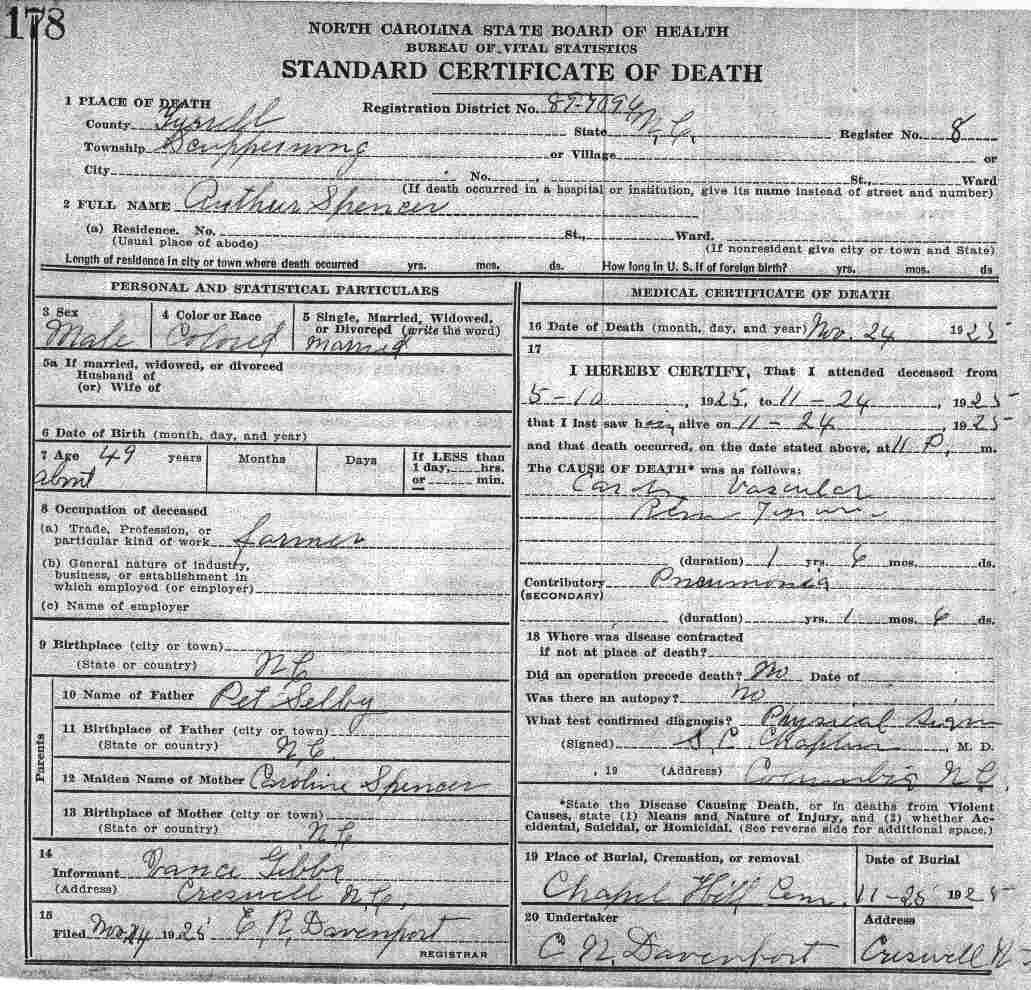 178
NORTH CAROLINA STATE BOARD OF HEALTH
BUREAU OF VITAL STATISTICS
STANDARD CERTIFICATE OF DEATH
1 PLACE OF DEATH Registration District No. 89-7094
County Tyrrell State N.C. Register No. 8
Township Scuppernong or Village or
City No. , St., Ward
(If death occurred in a hospital or institution, give its name instead of street and number)
2 FULL NAME Arthur Spencer
(a) Residence. No. St., Ward.
(Usual place of abode) (If nonresident give city or town and State)
Length of residence in city or town where death occurred yrs. mos. ds. How long in U. S. if of foreign birth? yrs. mos. ds
PERSONAL AND STATISTICAL PARTICULARS
3 Sex
Male
4 Color or Race
Colored
5 Single, Married, Widowed,
or Divorced (write the word)
married
5a If married, widowed, or divorced
Husband of
(or) Wife of
6 Date of Birth (month, day, and year)
7 Age 49 years
about
Months
Days
If LESS than
1 day, hrs.
or min.
8 Occupation of deceased
(a) Trade, Profession, or
particular kind of work farmer
(b) General nature of industry,
business, or establishment in
which employed (or employer)
(c) Name of employer
9 Birthplace (city or town)
(State or country) N C
Parents
10 Name of Father Pet Selby
11 Birthplace of Father (city or town)
(State or country) N.C.
12 Maiden Name of Mother Caroline Spencer
13 Birthplace of Mother (city or town)
(State or country) N.C
14
Informant Vance Gibbs
(Address) Creswell N.C.
15
Filed Nov. 24 1925 E. R. Davenport
REGISTRAR
MEDICAL CERTIFICATE OF DEATH
16 Date of Death (month, day, and year) Nov. 24 1925
17
I HEREBY CERTIFY, That I attended deceased from
5-10, 1925, to 11-24, 1925
that I last saw h alive on 11-24, 1925
and that death occurred, on the date stated above, at 11 P. m.
The CAUSE OF DEATH* was as follows:
Vascular
(duration) 1 yrs. 6 mos. ds.
Contributory Pneumonia
(SECONDARY)
(duration) yrs. 1 mos. 6 ds.
18 Where was disease contracted
if not at place of death?
Did an operation precede death? No Date of
Was there an autopsy? No
What test confirmed diagnosis? Physical
(Signed) S. C Chaplin, M. D.
, 19 (Address) Columbia N.C.
*State the Disease Causing Death, or in deaths from Violent
Causes, state (1) Means and Nature of Injury, and (2) whether Ac-
cidental, Suicidal, or Homicidal. (See reverse side for additional space.)
19 Place of Burial, Cremation, or removal
Chapel Hill Cem.
Date of Burial
11-25 1925
20 Undertaker
C N. Davenport
Address
Creswell N